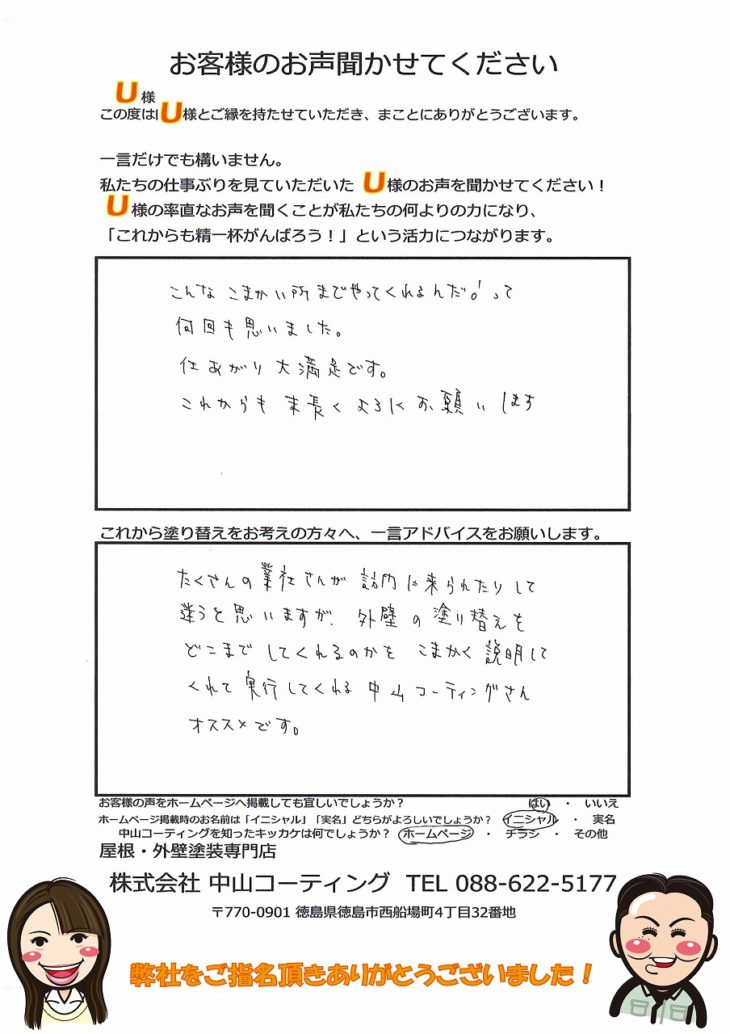 お客様のお声聞かせてください
U様
この度はU様とご縁を持たせていただき、まことにありがとうございます。
一言だけでも構いません。
私たちの仕事ぶりを見ていただいた U様のお声を聞かせてください！
U様の率直なお声を聞くことが私たちの何よりの力になり、
「これからも精一杯がんばろう！」という活力につながります。
こんな こまかい所までやってくれるんだ!って
何回も思いました。
仕あがり大満足です。
これからも末長くよろしくお願いします
これから塗り替えをお考えの方々へ、一言アドバイスをお願いします。
たくさんの業社さんが訪門に来られたりして
迷うと思いますが、外壁の塗り替えを
どこまでしてくれるのかを こまかく説明して
くれて実行してくれる中山コーティングさん
オススメです。
お客様の声をホームページへ掲載しても宜しいでしょうか？ はい ・ いいえ
ホームページ掲載時のお名前は「イニシャル」「実名」どちらがよろしいでしょうか？ イニシャル ・ 実名
中山コーティングを知ったキッカケは何でしょうか？ ホームページ ・ チラシ ・ その他
屋根・外壁塗装専門店
株式会社 中山コーティング TEL 088-622-5177
〒770-0901 徳島県徳島市西船場町4丁目32番地
弊社をご指名頂きありがとうございました！